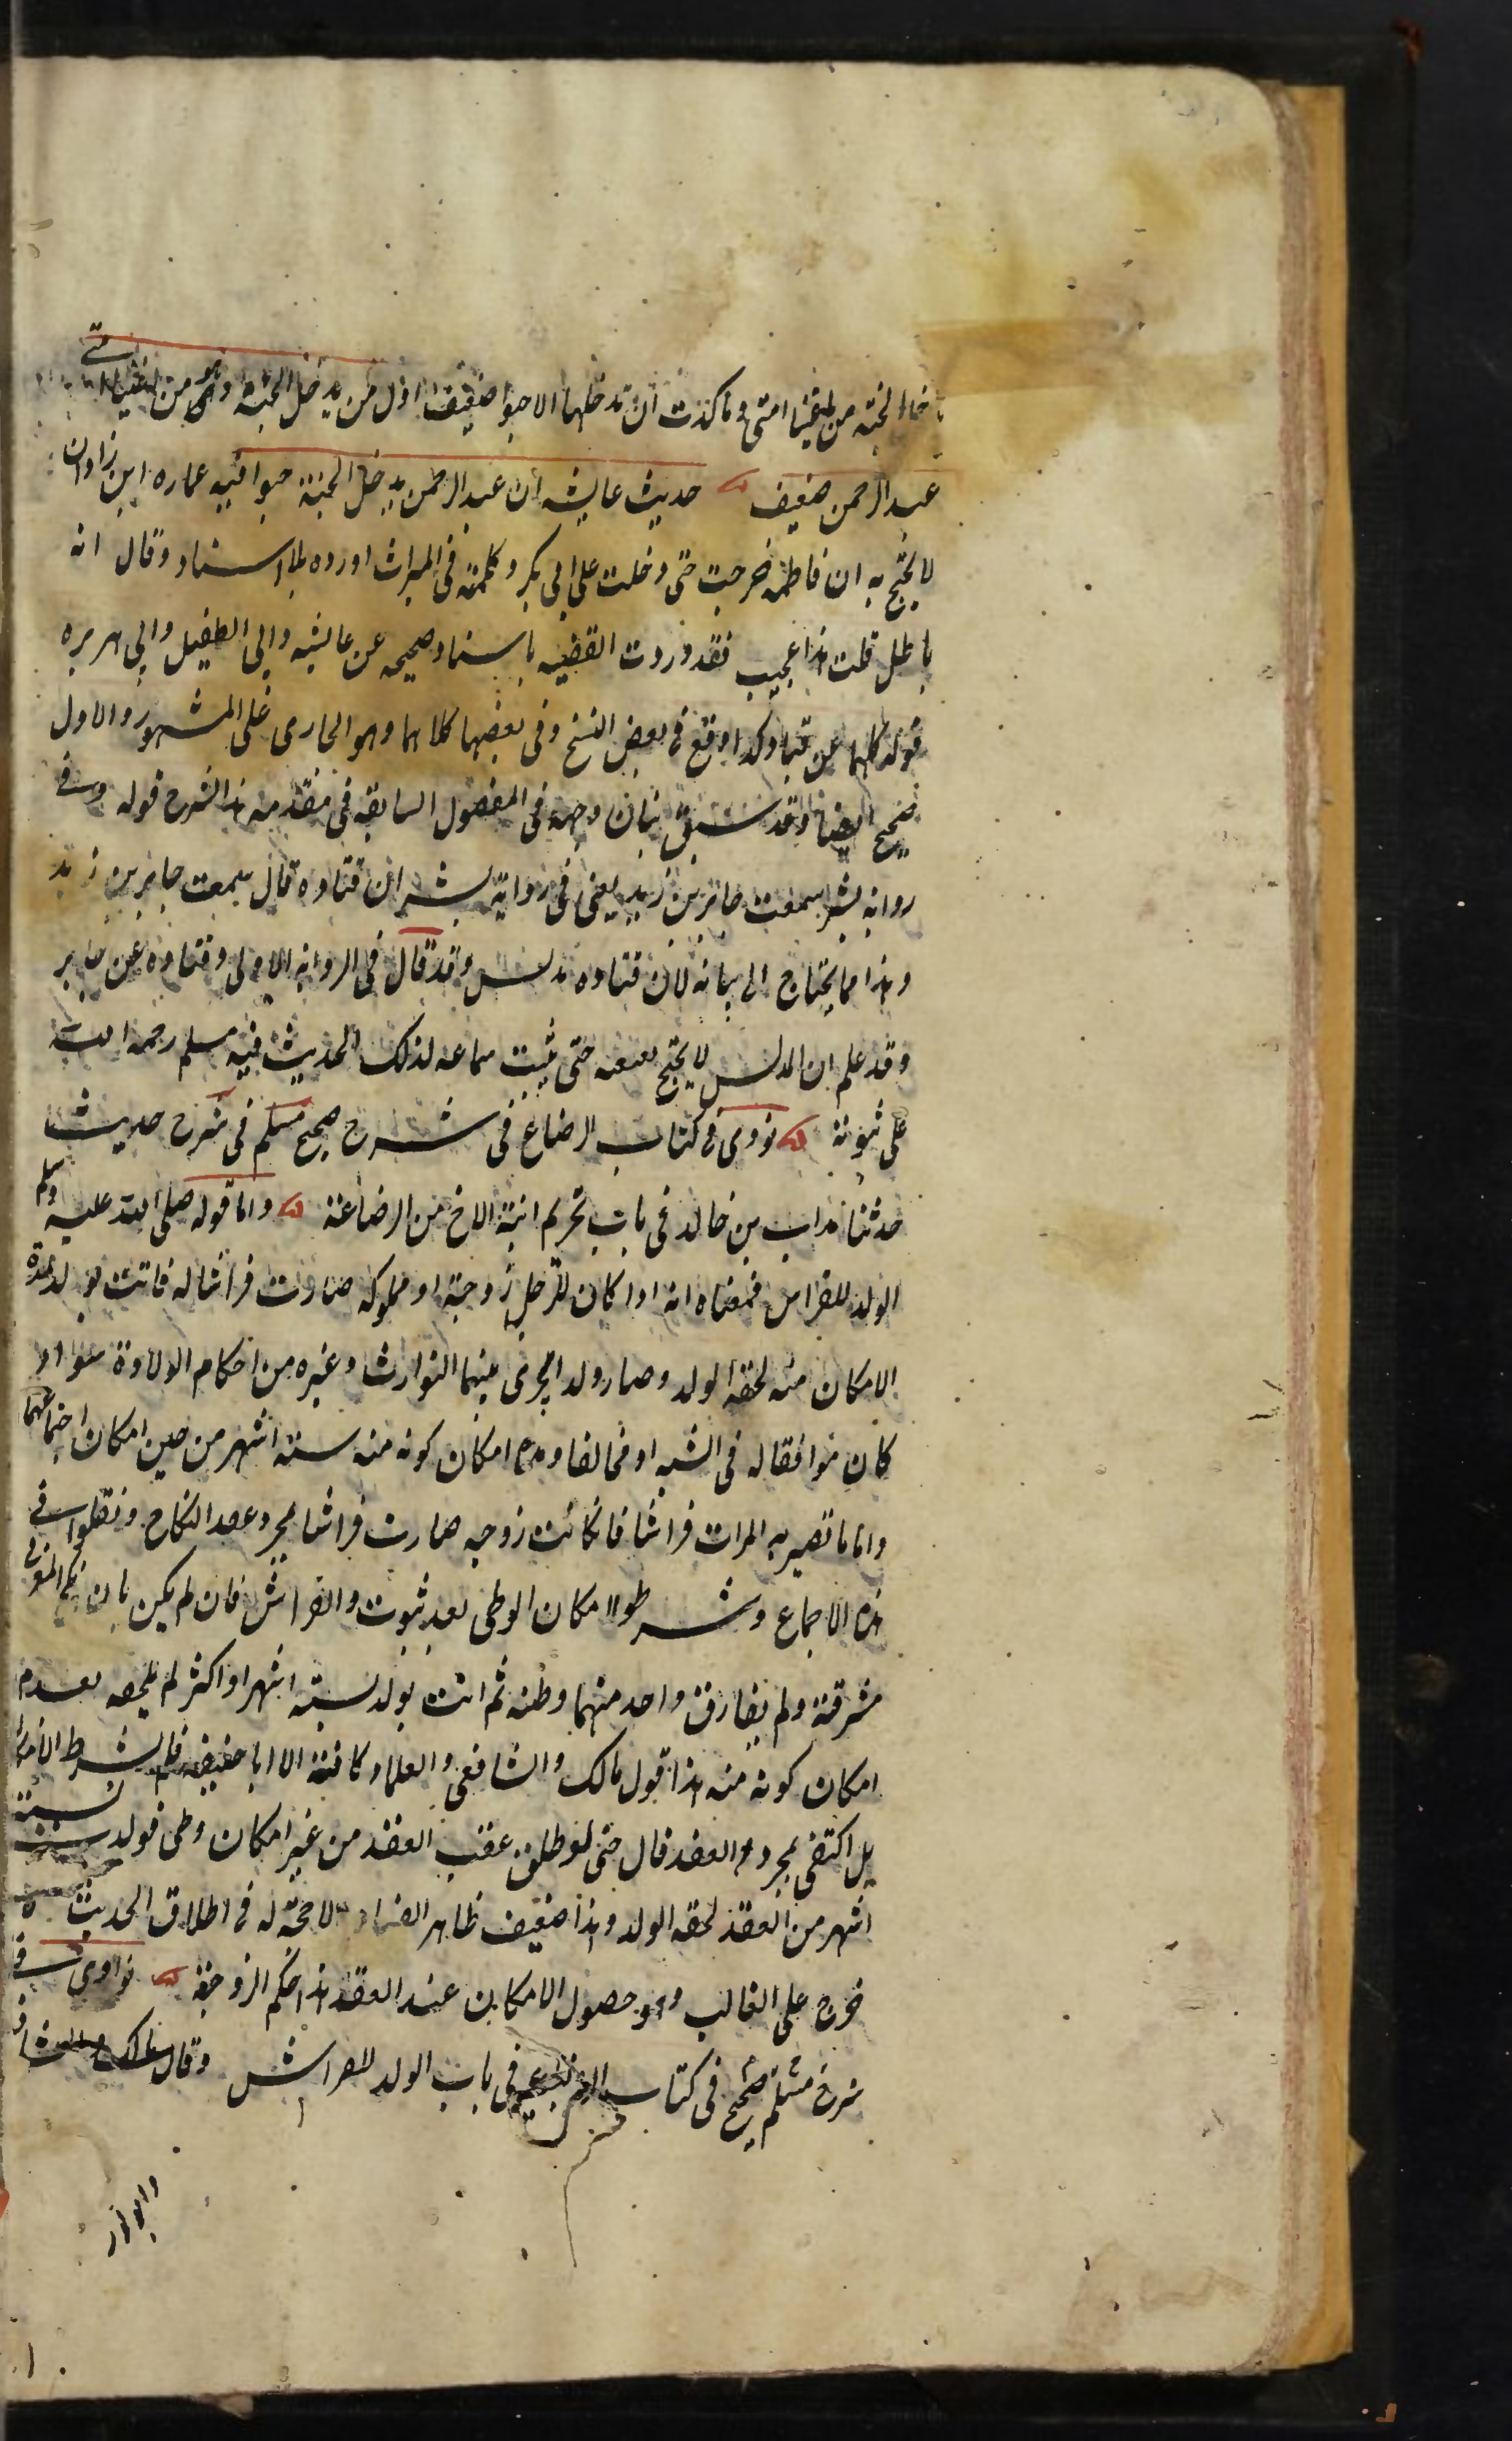 الجنة من اغنيا امتى وما كدت ان تدخلها الا حبوا ضعيف اول من يدخل الجنة من اغنيا امتى
عبد الرحمن ضعيف حديث عايشه ان عبد الرحمن يدخل الجنة حبوا فيه عماره ابن زاذان
لا يحتج به ان فاطمه خرجت حتى دخلت على ابى بكر وكلمته فى الميراث اورده بلا اسناد وقال انه
باطل قلت هذا عجيب فقد وردت القضيه باسناد صحيحه عن عايشه وابى الطفيل وابى هريره
قوله كليهما عن قتاده كذا وقع فى بعض النسخ وفى بعضها كلاهما وهو الجارى على المشهور والاول
صحيح ايضا وقد سبق بيان وجهه فى الفصول السابقه فى مقدمه هذا الشرح قوله وفى
روايه بشر سمعت جابر بن زيد يعنى فى رواية بشر ان قتاده قال سمعت جابر بن زيد
وهذا مما يحتاج الى بيانه لان قتاده مدلس وقد قال فى الروايه الاولى قتاده عن جابر
وقد علم ان المدلس لا يحتج بعنعنه حتى يثبت سماعه لذلك الحديث فنبه مسلم رحمه الله
على ثبوته نووى فى كتاب الرضاع فى شرح صحيح مسلم فى شرح حديث
حدثنا هداب بن خالد فى باب تحريم ابنة الاخ من الرضاعة واما قوله صلى الله عليه وسلم
الولد للفراش فمعناه انه اذا كان للرجل زوجة او مملوكه صارت فراشا له فاتت بولد لمدة
الامكان منه لحقه الولد وصار ولدا يجرى بينهما التوارث وغيره من احكام الولادة سواء
كان موافقا له فى الشبه او مخالفا ومدة امكان كونه منه ستة اشهر من حين امكان اجتماعهما
واما ما تصير به المرات فراشا فان كانت زوجه صارت فراشا بمجرد عقد النكاح ونقلوا فى
هذا الاجماع وشرطوا امكان الوطى بعد ثبوت والفراش فان لم يكن بان نكح المغربى
مشرقية ولم يفارق واحد منهما وطنه ثم اتت بولد لستة اشهر او اكثر لم يلحقه لعدم
امكان كونه منه هذا قول مالك والشافعى والعلماء كافة الا ابا حنيفه فلم يشترط الامكان
بل اكتفى بمجرد العقد قال حتى لو طلق عقب العقد من غير امكان وطى فولدت لستة
اشهر من العقد لحقه الولد وهذا ضعيف ظاهر الفساد لا حجة له فى اطلاق الحديث لانه
خرج على الغالب وهو حصول الامكان عند العقد هذا حكم الزوجة نواوى فى
شرح مسلم صحيح فى كتاب الرضاع فى باب الولد للفراش وقال مالك والشافعى